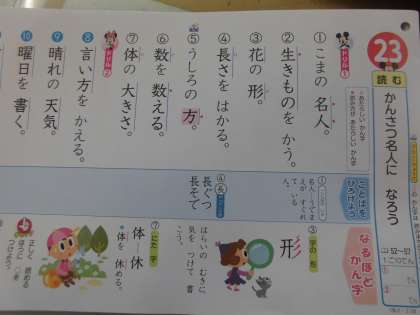 23
読む
かんさつ名人に なろう
52〜57
ドリル1
①こまの 名人。
②生きものを かう。
③花の 形。
④長さを はかる。
⑤うしろの 方。
⑥数を 数える。
⑦体の 大きさ。
ドリル2
⑧言い方を かえる。
⑨晴れの 天気。
⑩曜日を 書く。
ことばを ひろげよう
①
名人…うでまえが すぐれている 人。
④長
長ぐつ
長そで
なるほど かん字
③字の 形
形
はらいの むきに 気を つけて 書こう。
⑦にた 字
体―休
体を 休める。
正しく 読める ほうに ○を つけよう